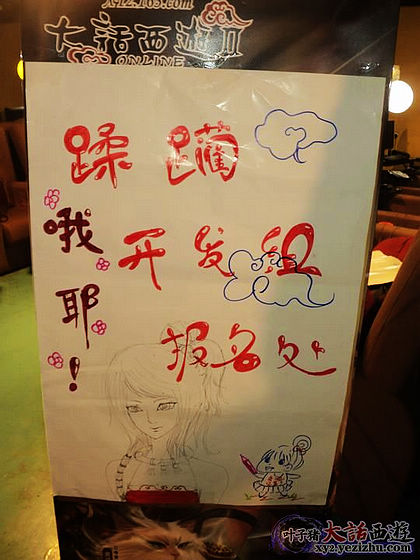 xy2.163.com
大话西游II
ONLINE
蹂躏
开发组
报名处
哦耶！
叶子猪 大話西遊
xyz.yezizhu.com